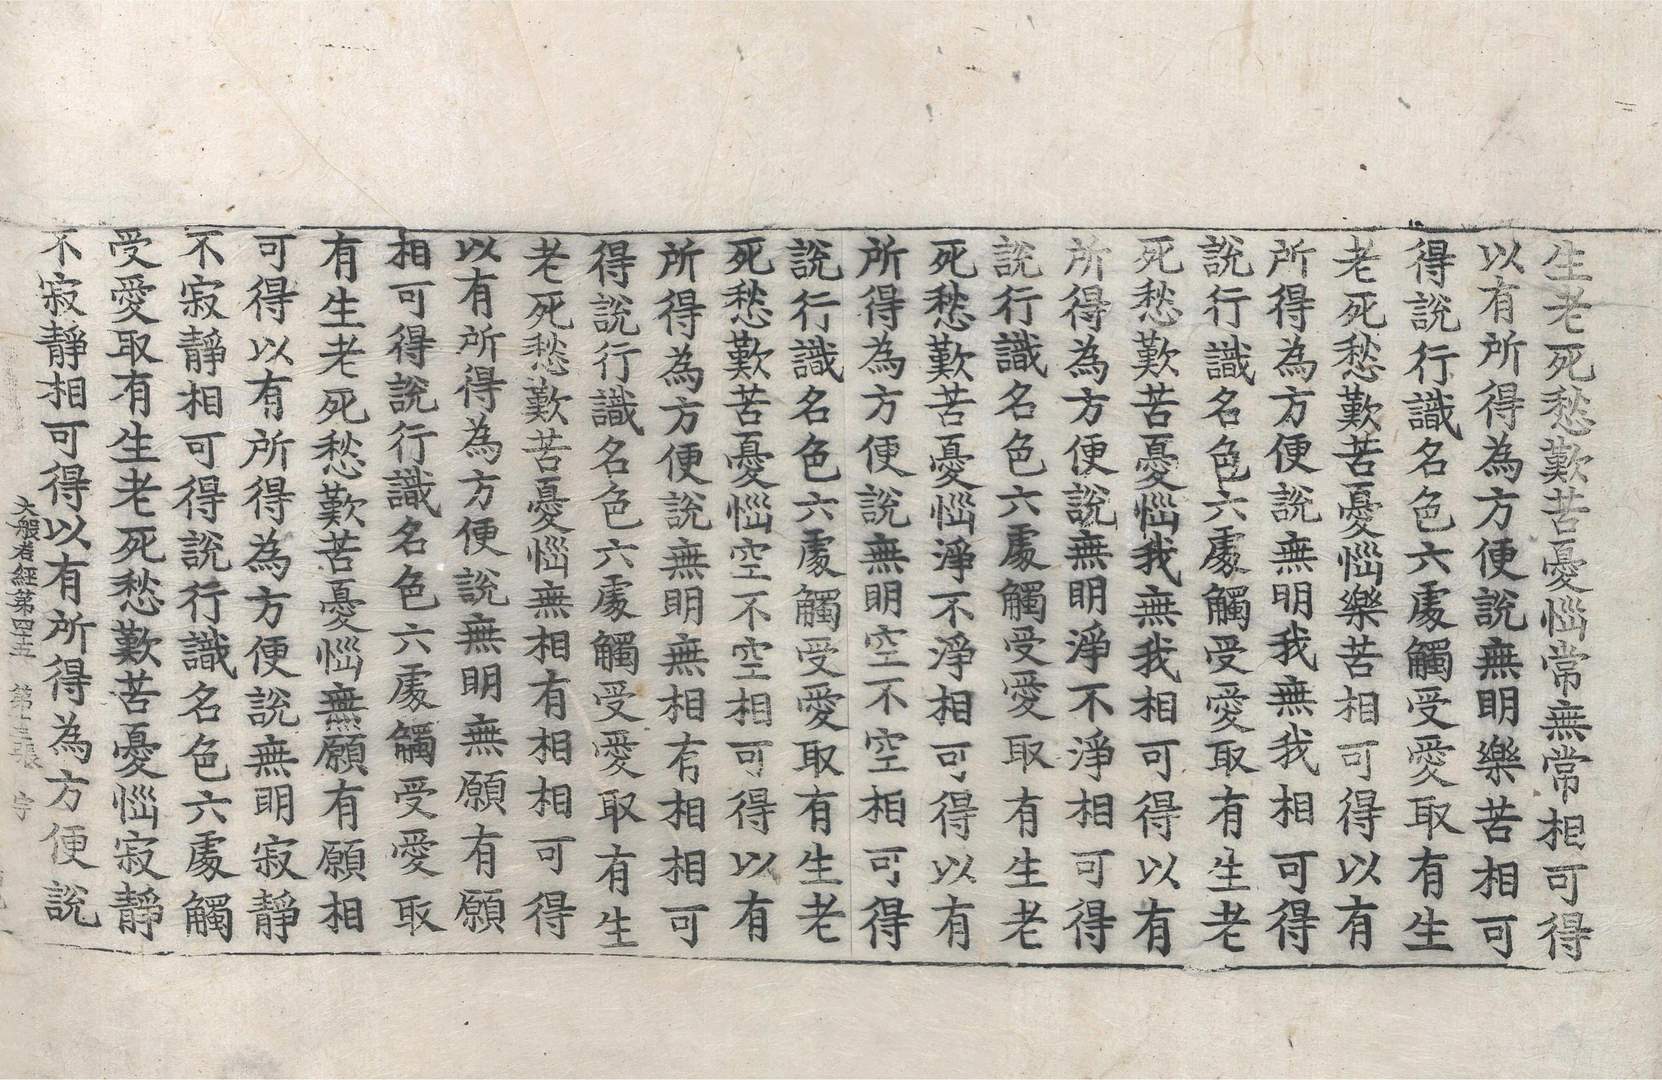 生老死愁歎苦憂惱常無常相可得
以有所得為方便說無明樂苦相可
得說行識名色六處觸受愛取有生
老死愁歎苦憂惱樂苦相可得以有
所得為方便說無明我無我相可得
說行識名色六處觸受愛取有生老
死愁歎苦憂惱我無我相可得以有
所得為方便說無明淨不淨相可得
說行識名色六處觸受愛取有生老
死愁歎苦憂惱淨不淨相可得以有
所得為方便說無明空不空相可得
說行識名色六處觸受愛取有生老
死愁歎苦憂惱空不空相可得以有
所得為方便說無明無相有相相可
得說行識名色六處觸受愛取有生
老死愁歎苦憂惱無相有相相可得
以有所得為方便說無明無願有願
相可得說行識名色六處觸受愛取
有生老死愁歎苦憂惱無願有願相
可得以有所得為方便說無明寂靜
不寂靜相可得說行識名色六處觸
受愛取有生老死愁歎苦憂惱寂靜
不寂靜相可得以有所得為方便說
大般若經第四十五 第 張 宇